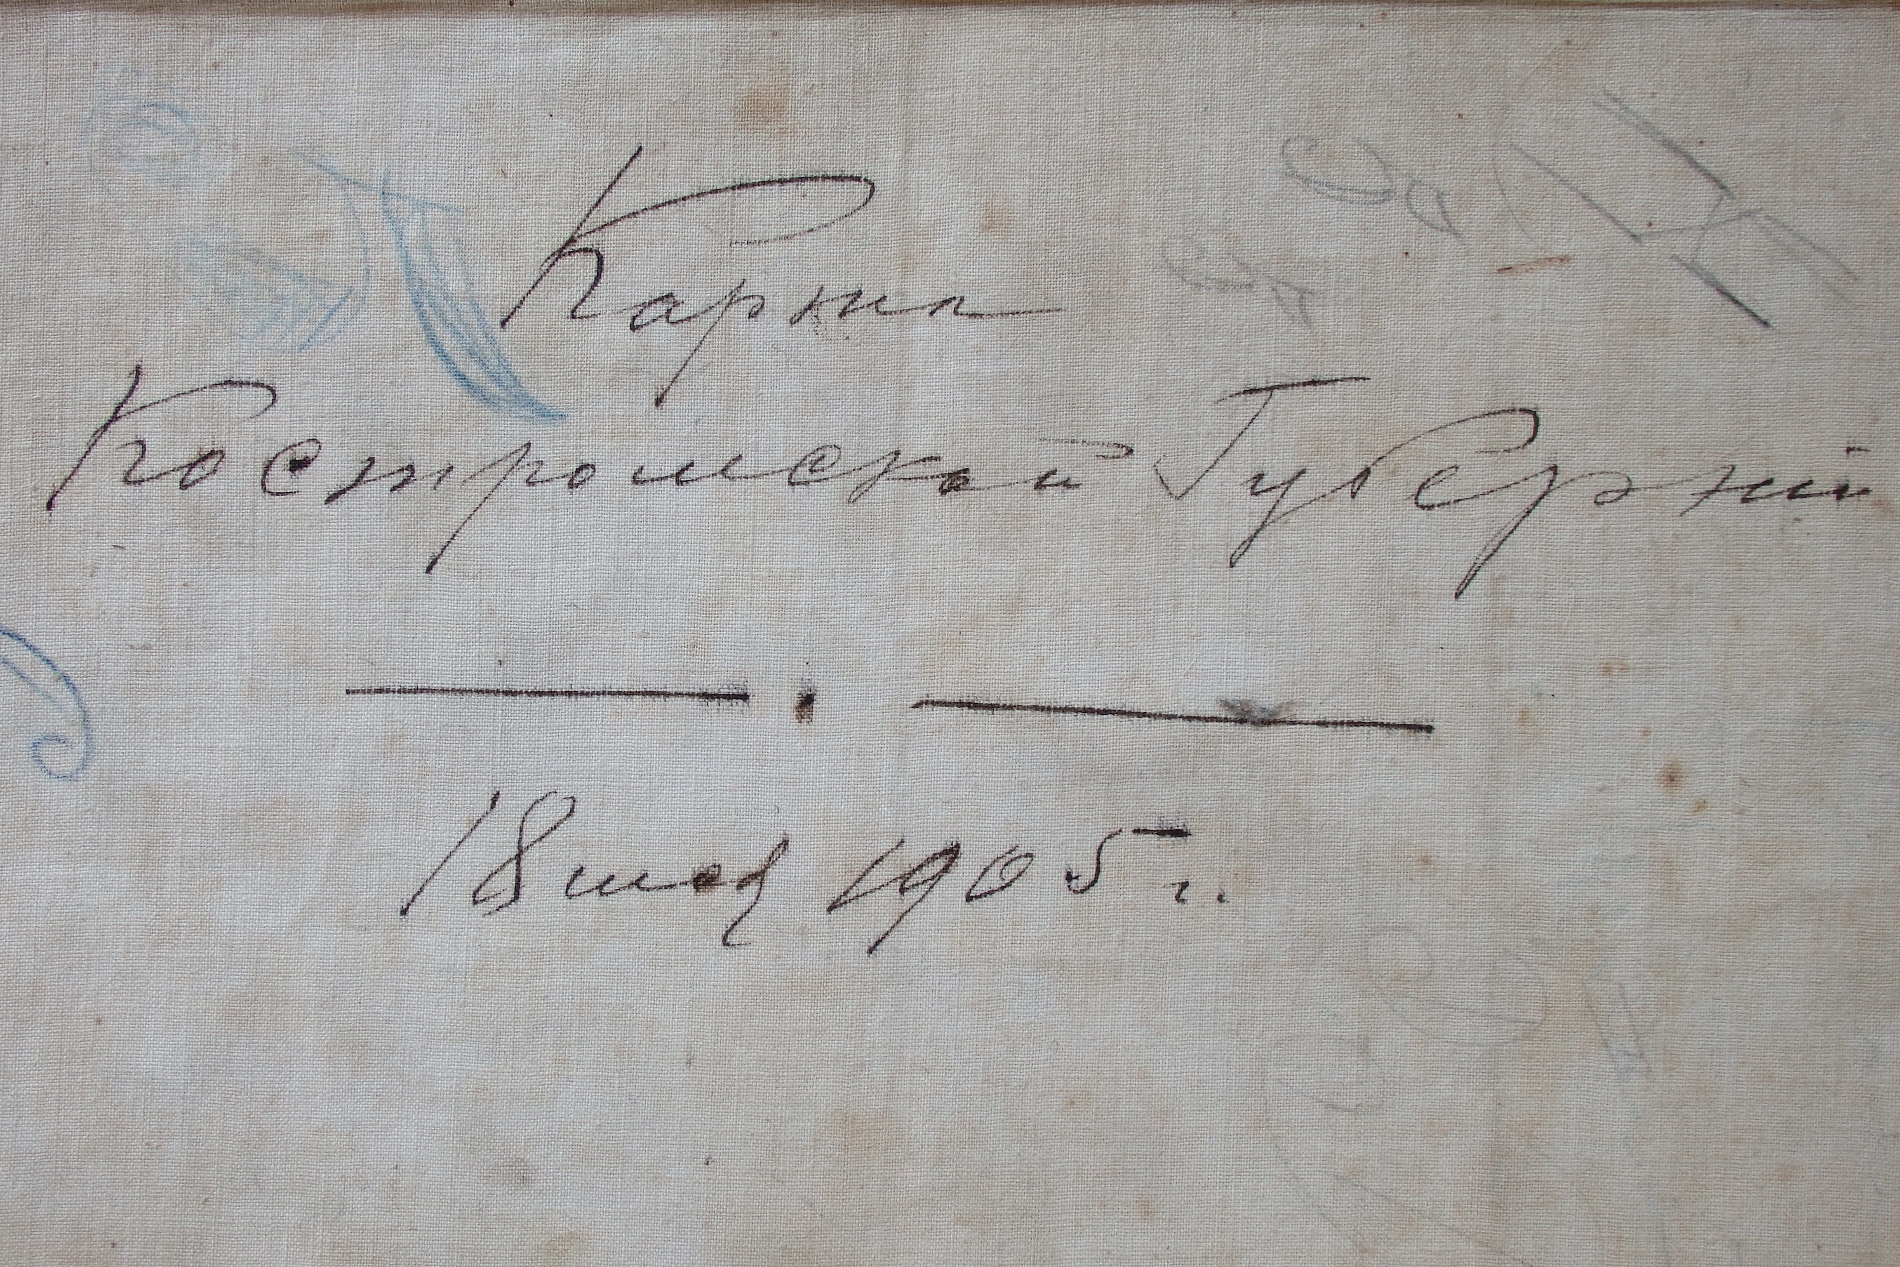 Карта
Костромской Губернiи
18 мая 1905 г.